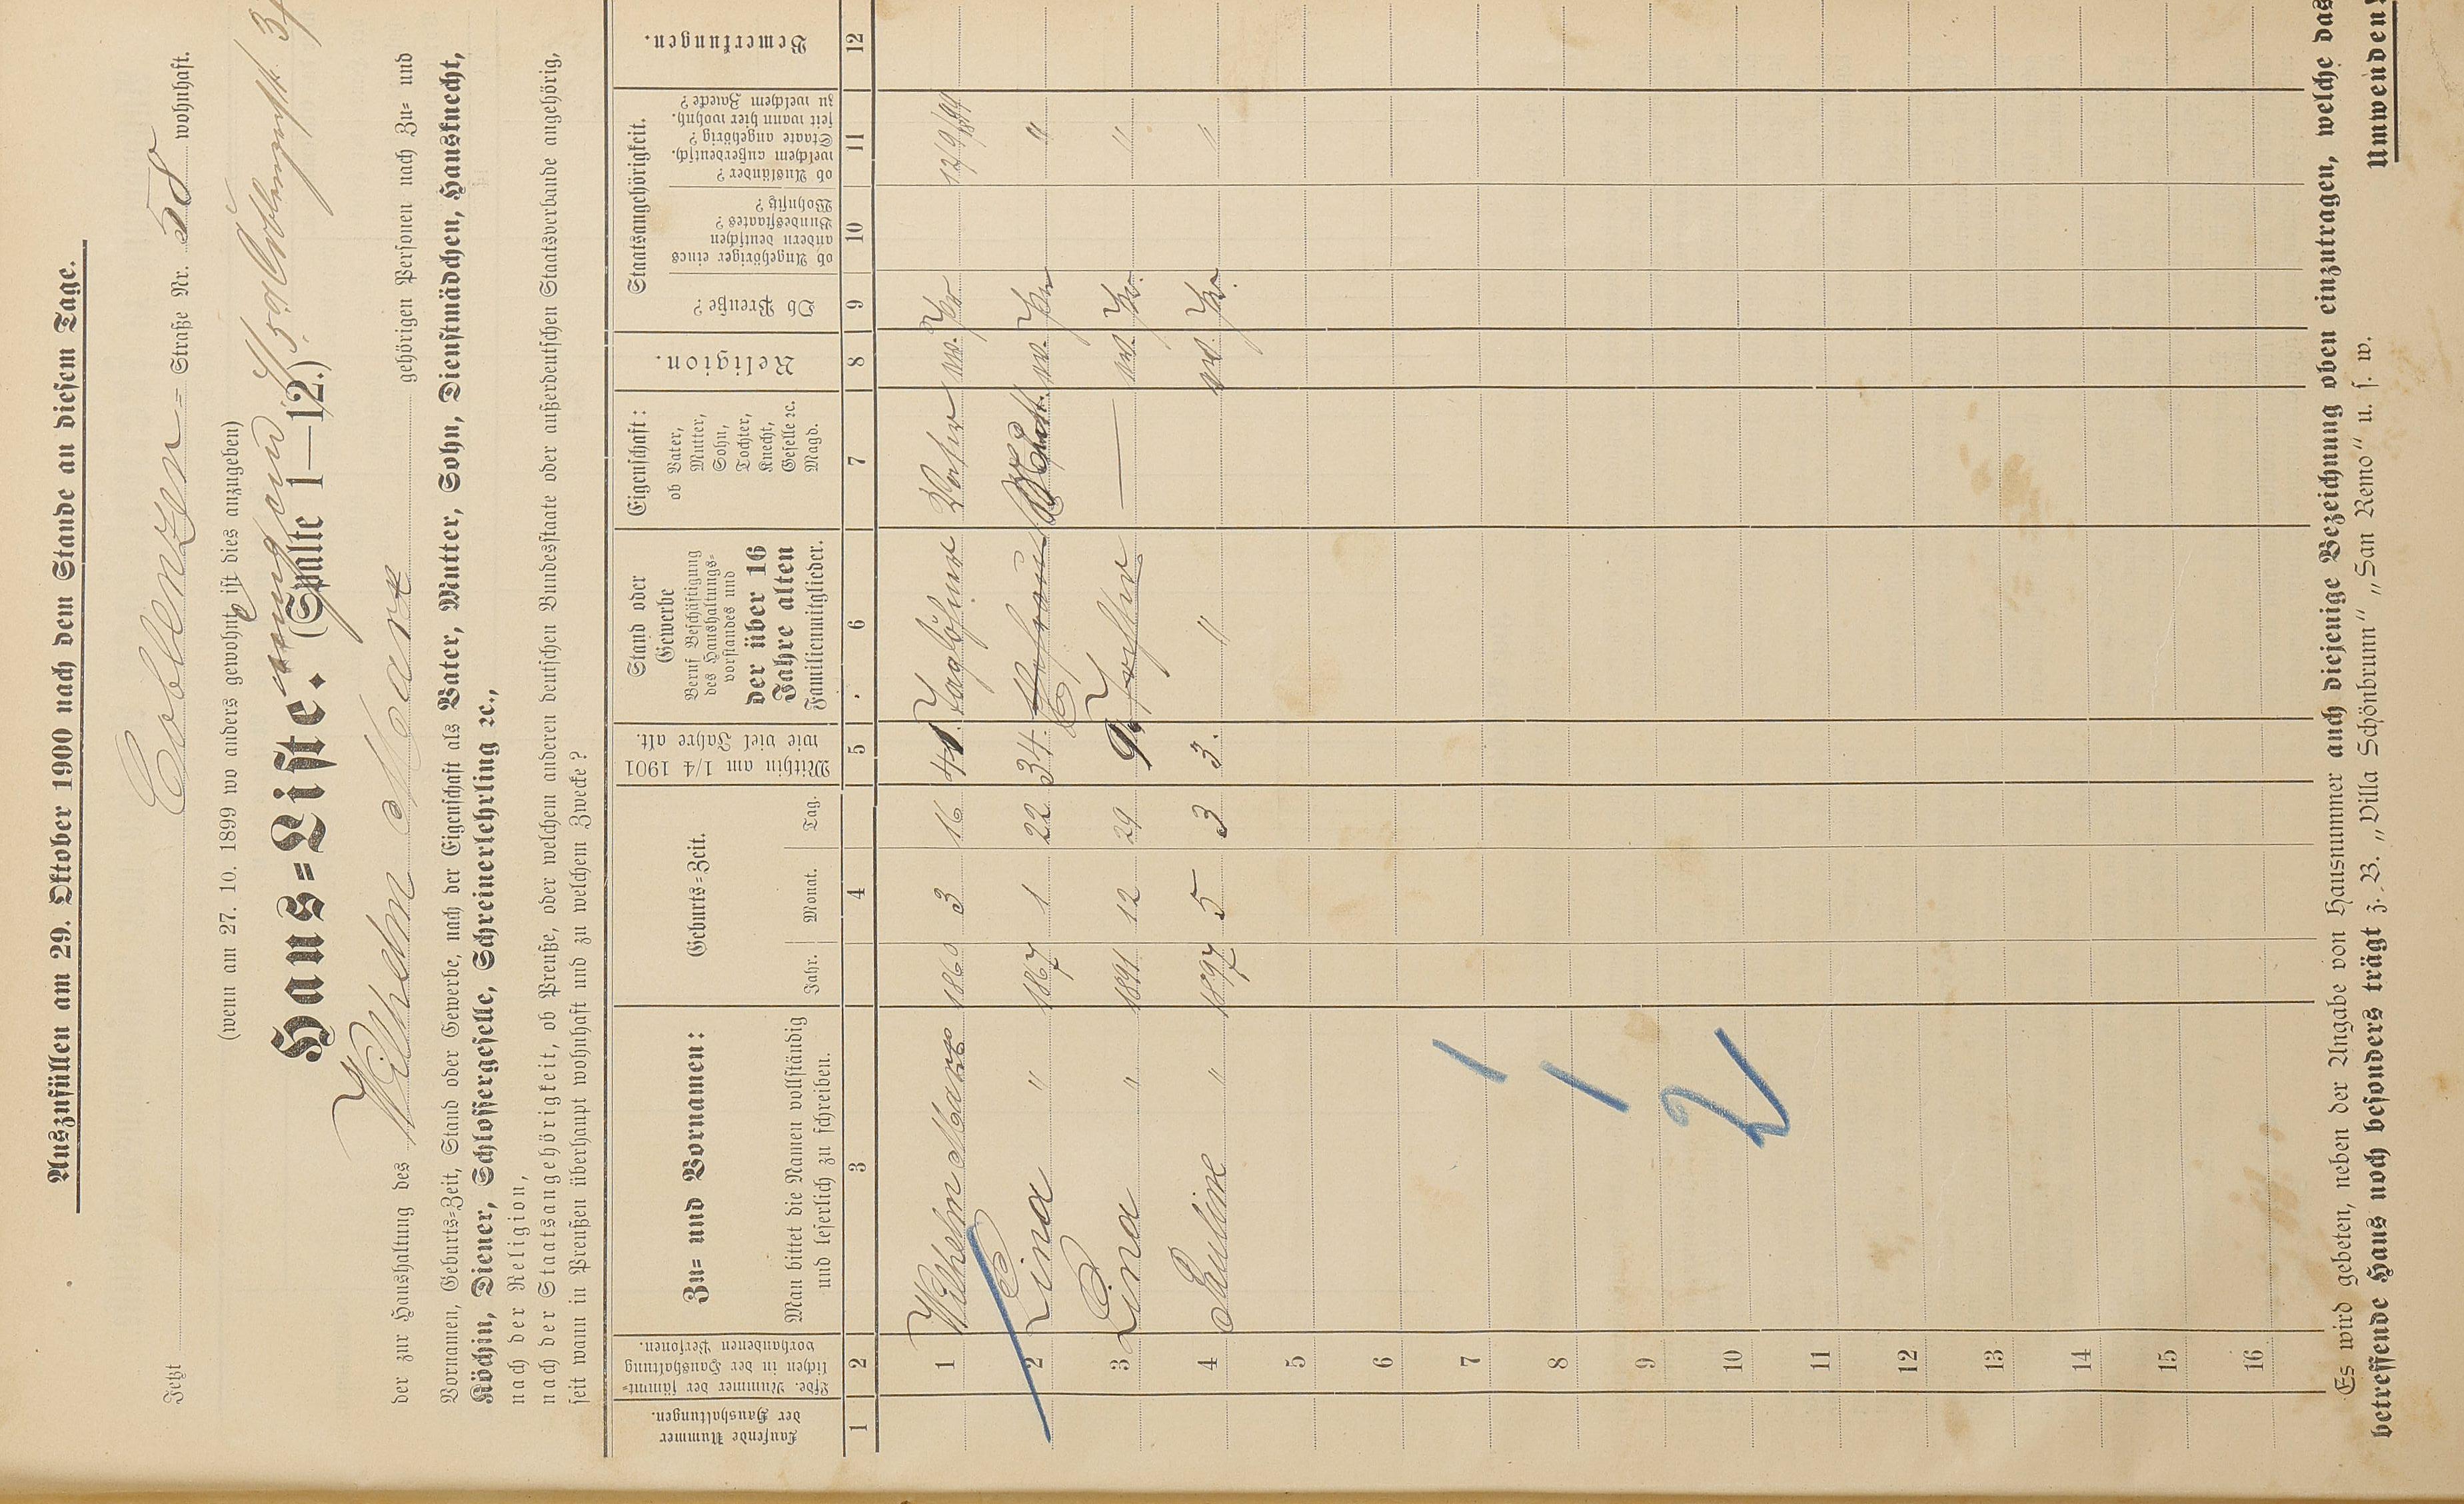 Auszufüllen am 29. Oktober 1900 nach dem Stande an diesem Tage.
Jetzt Coblenzer = Straße Nr. 58 wohnhaft.
(wenn am 27. 10. 1899 wo anders gewohnt, ist dies anzugeben)
Haus=Liste. (Spalte 1—12.)
der zur Haushaltung des Wilhelm Marx gehörigen Personen nach Zu= und
Vornamen, Geburts=Zeit, Stand oder Gewerbe, nach der Eigenschaft als Vater, Mutter, Sohn, Dienstmädchen, Hausknecht,
Köchin, Diener, Schlossergeselle, Schreinerlehrling ꝛc.,
nach der Religion,
nach der Staatsangehörigkeit, ob Preuße, oder welchem anderen deutschen Bundesstaate oder außerdeutschen Staatsverbande angehörig,
seit wann in Preußen überhaupt wohnhaft und zu welchem Zwecke?
Laufende Nummer der Haushaltungen.
Lfde. Nummer der sämmtlichen in der Haushaltung vorhandenen Personen.
Zu= und Vornamen:
Man bittet die Namen vollständig
und leserlich zu schreiben.
Geburts=Zeit.
Jahr. Monat. Tag.
Mithin am 1/4 1901
wie viel Jahre alt.
Stand oder
Gewerbe
Beruf Beschäftigung
des Haushaltungs=
vorstandes und
der über 16
Jahre alten
Familienmitglieder.
Eigenschaft:
ob Vater,
Mutter,
Sohn,
Tochter,
Knecht,
Geselle ꝛc.
Magd.
Religion.
Staatsangehörigkeit.
Ob Preuße?
ob Angehöriger eines
andern deutschen
Bundesstaates?
Wohnsitz?
ob Ausländer?
welchem außerdeutsch.
Staate angehörig?
seit wann hier wohnh.
zu welchem Zwecke?
Bemerkungen.
1 2 3 4 5 6 7 8 9 10 11 12
1 Wilhelm Marx 1860 3 16 41 Taglöhner Vater ev. Pr
2 Lina " 1867 1 22 34. Ehefrau ev. Pr "
3 Lina " 1891 12 29 9 Tochter — ev. Pr. "
4 Pauline " 1897 5 3 3. " ev. Pr. "
5
6
7
8
9
10
11
12
13
14
15
16
Es wird gebeten, neben der Angabe von Hausnummer auch diejenige Bezeichnung oben einzutragen, welche das
betreffende Haus noch besonders trägt z. B. „Villa Schönbrunn" „San Remo" u. s. w.
Umwenden!